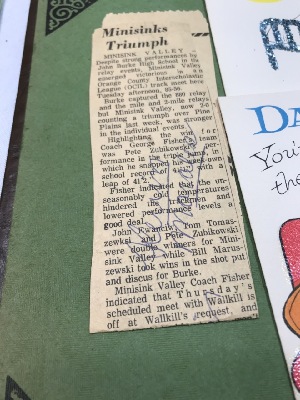 Minisinks
Triumph
MINISINK VALLEY
Despite strong performances by
John Burke High School in the
relay events, Minisink Valley
emerged victorious in an
Orange County Interscholastic
League (OCIL) track meet here
Tuesday afternoon,
Burke captured the 880 relay
and the mile and 2-mile relays
but Minisink Valley,
counting a triumph over Pine
Plains last week, was stronger
in the individual events.
Highlighting the win for
Coach George Fisher's team
was Pete Zubikowski's per-
formance in the triple jump,
which he snapped his own
school record of with a
leap of 41'2".
Fisher indicated that the un-
seasonably cold temperatures
hindered the trackmen and
lowered performance levels a
good deal.
John Kwancia, Tom Tomas-
zewski and Pete Zubikowski
were double winners for Mini-
sink Valley while Bill Marus-
zewski took wins in the shot put
and discus for Burke.
Minisink Valley Coach Fisher
indicated that Thursday's
scheduled meet with Wallkill is
off at Wallkill's request, and
DA
You're
the